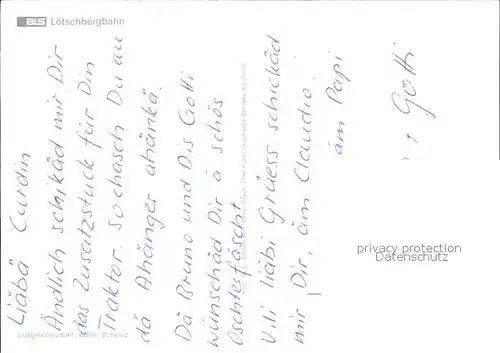 BLS Lötschbergbahn
Liäbä Curdin
Ändlich schikäd mir Dir
das Zusatzstück für Din
Traktor. so chasch Du au
dä Ahänger ahänkä.
Dä Bruno und Dis Gotti
wünschäd Dir ä schös
Oschterfäscht
Vili liäbi Grüess schickäd
mir Dir, äm Claudio,
äm Papi
+ Götti
privacy protection
Datenschutz